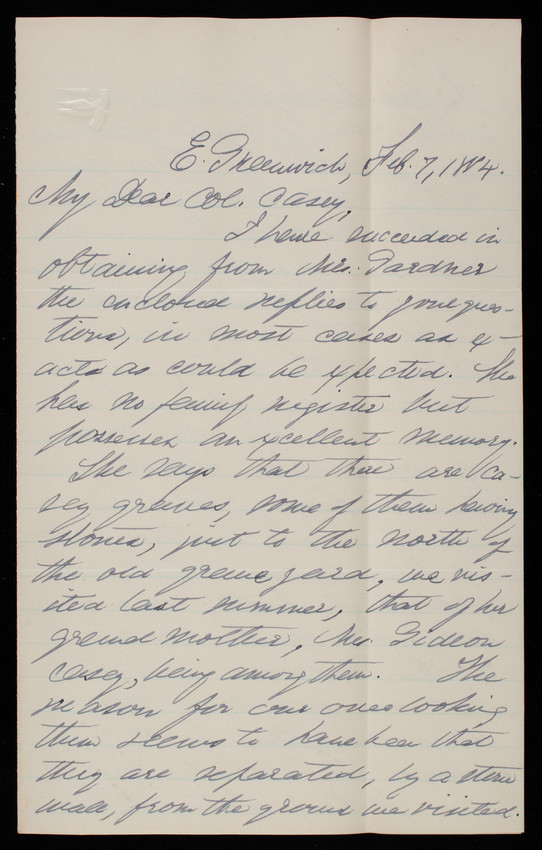 E. Greenwich, Feb. 7, 1884.
My Dear Col. Casey,
I have succeeded in
obtaining from Mrs. Gardner
the enclosed replies to your ques-
tions, in most cases as ex-
acts as could be expected. She
has no family register but
possesses an excellent memory.
She says that there are Ca-
sey graves, some of them having
stones, just to the north of
the old grave yard, we vis-
ited last summer, that of her
grand mother, Mrs. Gideon
Casey, being among them. The
reason for our overlooking
them seems to have been that
they are separated, by a stone
wall, from the ground we visited.